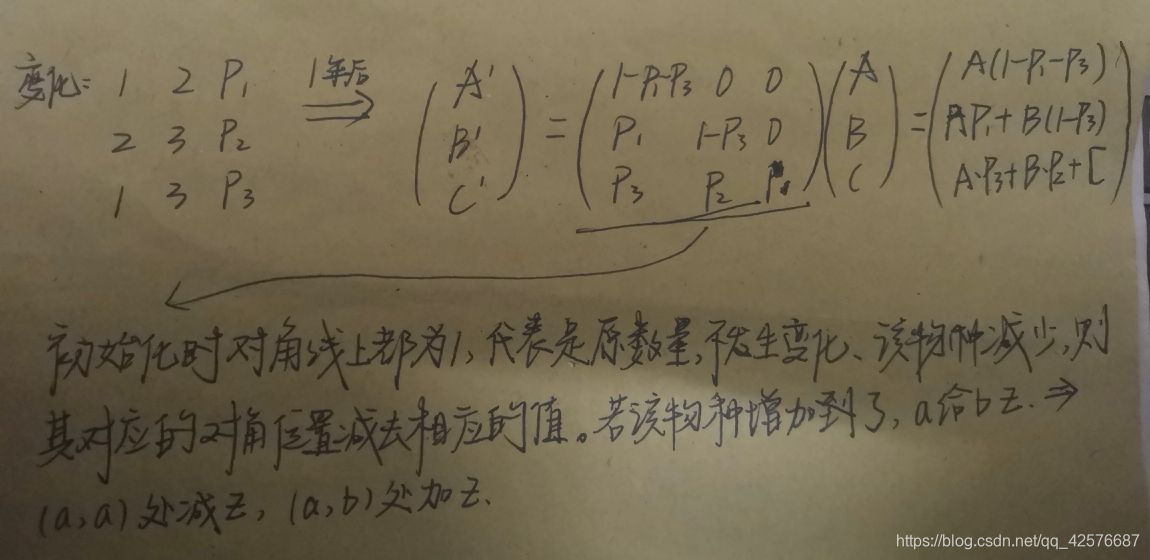 变化: 1 2 P₁ 1年后 ⇒ (A' B' C') = (1-P₁-P₃ 0 0) (A B C) = (A(1-P₁-P₃))
2 3 P₂ (P₁ 1-P₃ 0) (AP₁+B(1-P₃))
1 3 P₃ (P₃ P₂) (A·P₃+B·P₂+C)
初始化时对角线上都为1,代表是原数量,不发生变化、该物种减少,则
其对应的对角位置减去相应的值。若该物种增加到了,a给bz.⇒
(a,a)处减z,(a,b)处加z.
https://blog.csdn.net/qq_42576687